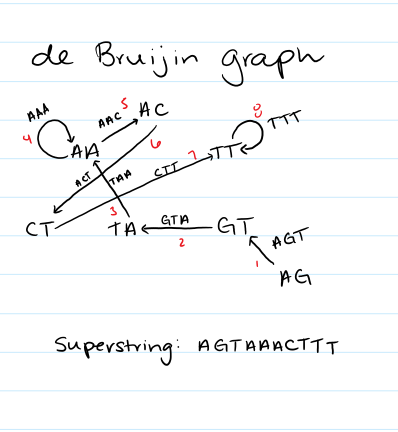 de Bruijin graph
AAA
AAC 5 AC
8
TTT
4
AA
6
TT
ACT
TAA
CTT 7
CT
3
TA
GTA
2
GT
AGT
1
AG
Superstring: AGTAAACTTT